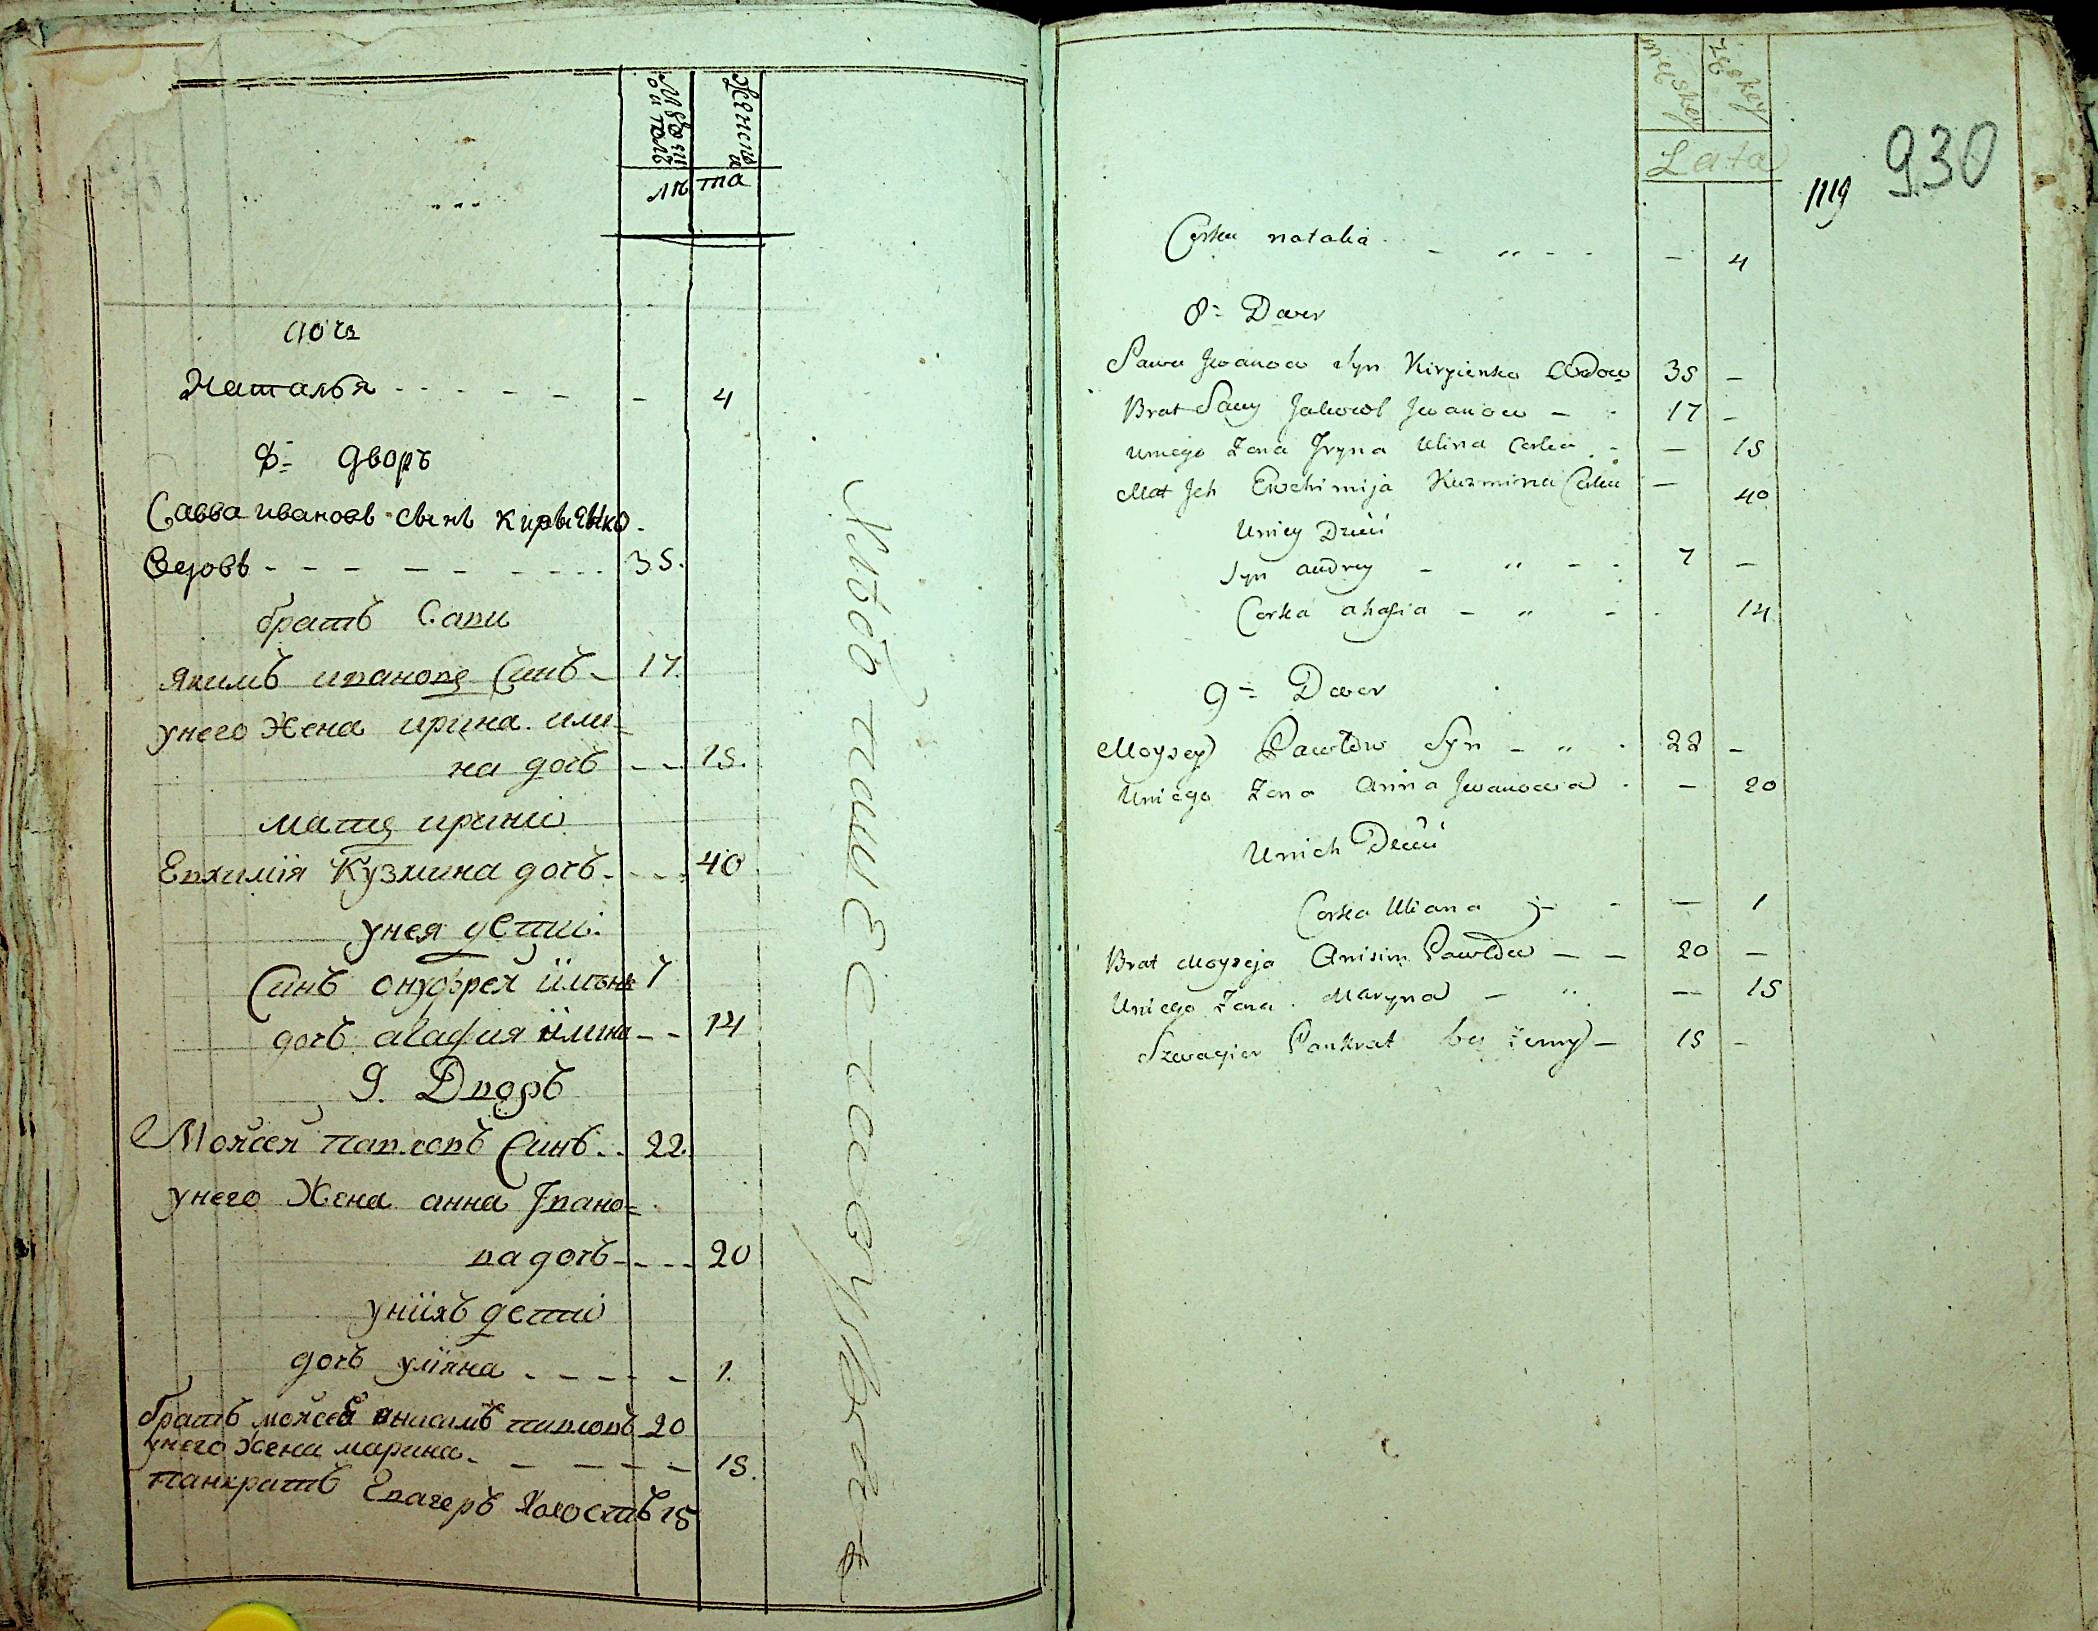 Мужеска полъ
Женска
лѣта
дочь
Наталья 4
8 дворъ
Савва ивановъ сынъ кирыенко
Ведовъ 35.
братъ Сави
якимъ иванова Синъ 17.
унего Жена ирина или=
на дочъ 15.
мати ирини
Евхимія Кузмина дочъ 40
унея дети:
Синъ онуфрей 7
дочъ агафия илина 14
9. Дворъ
Мойсей павловъ Синъ 22.
унего Жена анна Івано=
ва дочъ 20
уніихъ дети
дочъ уліяна 1.
братъ мойсея анисимъ павловъ 20
унего жена марина 15.
панкратъ Свагеръ Холостъ 15
męskey
żeńskey
Lata
1119
930
Corka natalia 4
8 Dwor
Sawa Iwanow Syn Kirpienko Wdow 35
Brat Sawy Jakowl Iwanow 17
uniego Zona Iryna Ulina Corka 15
Mat Ich Ewchimija Kuzmina Corka 40
Uniey Dzieci
Syn andrey 7
Corka ahafia 14
9 Dwor
Moysey Pawłow Syn 22
Uniego Zona Anna Iwanowa 20
Unich Dzieci
Corka Uliana 1
Brat Moyseja Anisim Pawłow 20
Uniego Zona Maryna 15
Szwagier Pankrat bez żony 15